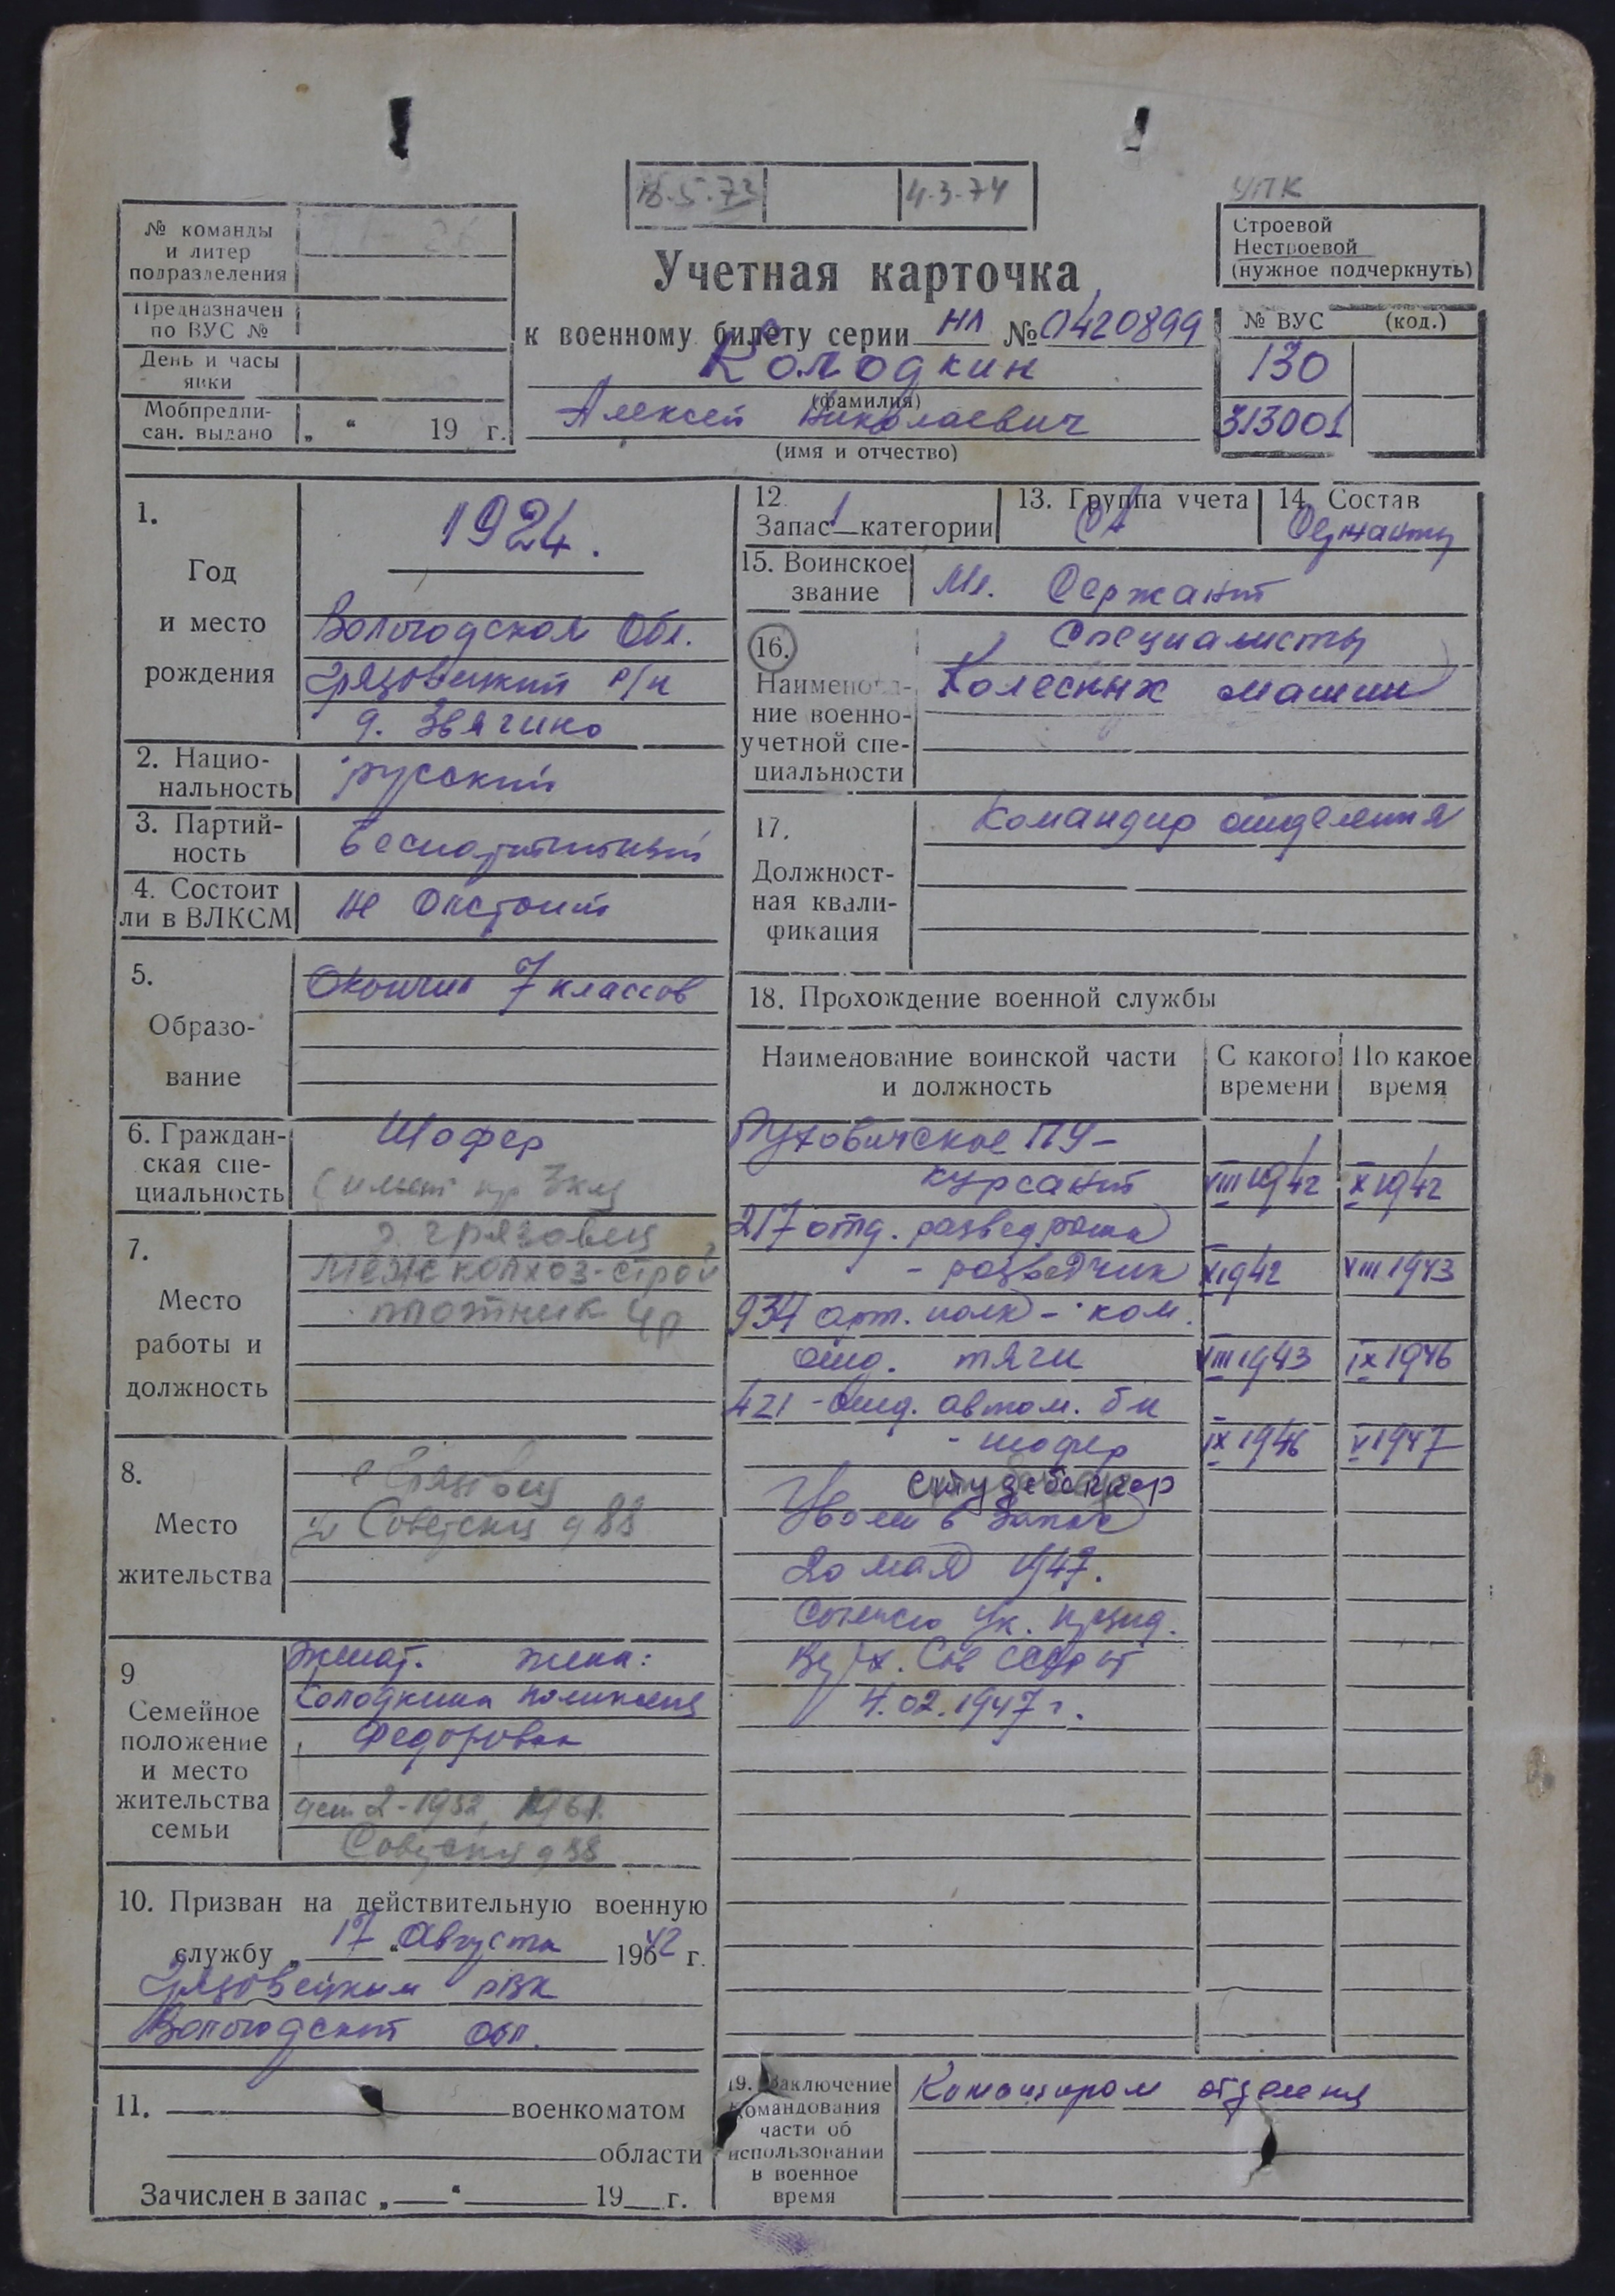 16.5.73 4.3.74
УПК
№ команды
и литер
подразделения
Предназначен
по ВУС №
День и часы
явки
Мобпредпи-
сан. выдано „ “ 19 г.
Учетная карточка
к военному билету серии НЛ № 0420899
Колодкин
(фамилия)
Алексей Николаевич
(имя и отчество)
Строевой
Нестроевой
(нужное подчеркнуть)
№ ВУС (код.)
130
313001
1.
Год
и место
рождения
1924.
Вологодская Обл.
Грязовецкий р/н
д. Звягино
2. Нацио-
нальность
русский
3. Партий-
ность
беспартийный
4. Состоит
ли в ВЛКСМ
не состоит
5.
Образо-
вание
Окончил 7 классов
6. Граждан-
ская спе-
циальность
Шофер
3 кл
7.
Место
работы и
должность
г. Грязовец
Межколхоз-строй
плотник 4р
8.
Место
жительства
г Грязовец
ул Советская д 88
9
Семейное
положение
и место
жительства
семьи
женат. жена:
Колодкина
Федоровна
дети 2-1952, 1961.
Советская д 88
10. Призван на действительную военную
службу „ 17 “ Августа 1942 г.
Грязовецким РВК
Вологодской обл.
11. военкоматом
области
Зачислен в запас „ “ 19 г.
12.
Запас 1 категории
13. Группа учета
СА
14. Состав
Сержанты
15. Воинское
звание
Мл. Сержант
16.
Наименова-
ние военно-
учетной спе-
циальности
Специалисты
Колесных машин
17.
Должност-
ная квали-
фикация
Командир отделения
18. Прохождение военной службы
Наименование воинской части
и должность
С какого
времени
По какое
время
Пуховичское ПУ -
курсант VIII 1942 X 1942
217 отд. развед рота
- разведчик X 1942 VIII 1943
934 арт. полк - ком.
отд. тяги VIII 1943 IX 1946
421 - отд. автом. б-н
- шофер IX 1946 V 1947
студебеккер
Уволен в запас
20 мая 1947.
Согласно Ук. През.
Верх. Сов СССР от
4.02.1947 г.
19. Заключение
командования
части об
использовании
в военное
время
Командиром отделения